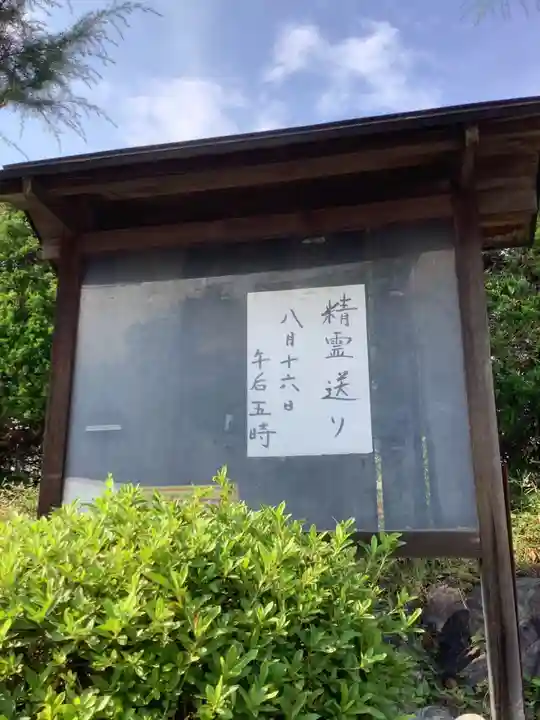 精霊送り
八月十六日
午后五時